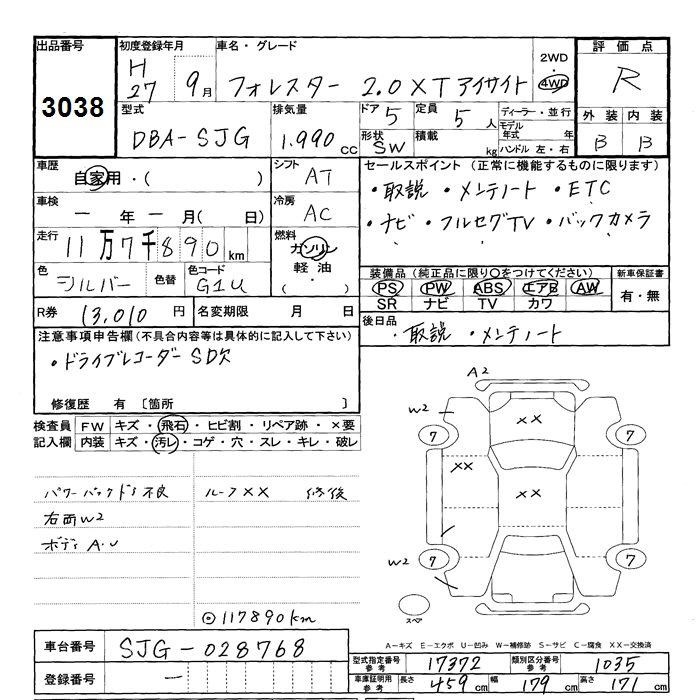 出品番号 初度登録年月 車名・グレード 評価点
3038 H27 9月 フォレスター 2.0XTアイサイト 2WD 4WD R
型式 排気量 ドア 定員 ディーラー・並行 外装 内装
DBA-SJG 1,990 cc 5 5人 モデル年式 年 B B
形状 SW 積載 kg ハンドル 左・右
車歴 シフト セールスポイント (正常に機能するものに限ります)
自家用・( ) AT ・取説 ・メンテノート ・ETC
車検 冷房
一年一月(日) AC ・ナビ ・フルセグTV ・バックカメラ
走行 燃料
11万7千890km ガソリン
軽油
・( )
色 色替 色コード 装備品 (純正品に限り○をつけてください) 新車保証書
シルバー G1U PS PW ABS エアB AW 有・無
SR ナビ TV カワ
R券 13,010円 名変期限 月 日 後日品
・取説 ・メンテノート
注意事項申告欄(不具合内容等は具体的に記入して下さい)
・ドライブレコーダー SD欠
修復歴 有 〔箇所 〕
検査員 FW キズ・飛石・ヒビ割・リペア跡・×要
記入欄 内装 キズ・汚レ・コゲ・穴・スレ・キレ・破レ
パワーバックドア不良 ルーフXX 修後
右面W2
ボディA.U
◎117890km
A2
W2 XX
7 7
XX XX
W2
7 7
スペア
A-キズ E-エクボ U-凹み W-補修跡 S-サビ C-腐食 XX-交換済
車台番号 SJG-028768
型式指定番号 参考 17372 類別区分番号 参考 1035
登録番号 一
車庫証明用 参考 長さ 459cm 幅 179cm 高さ 171cm